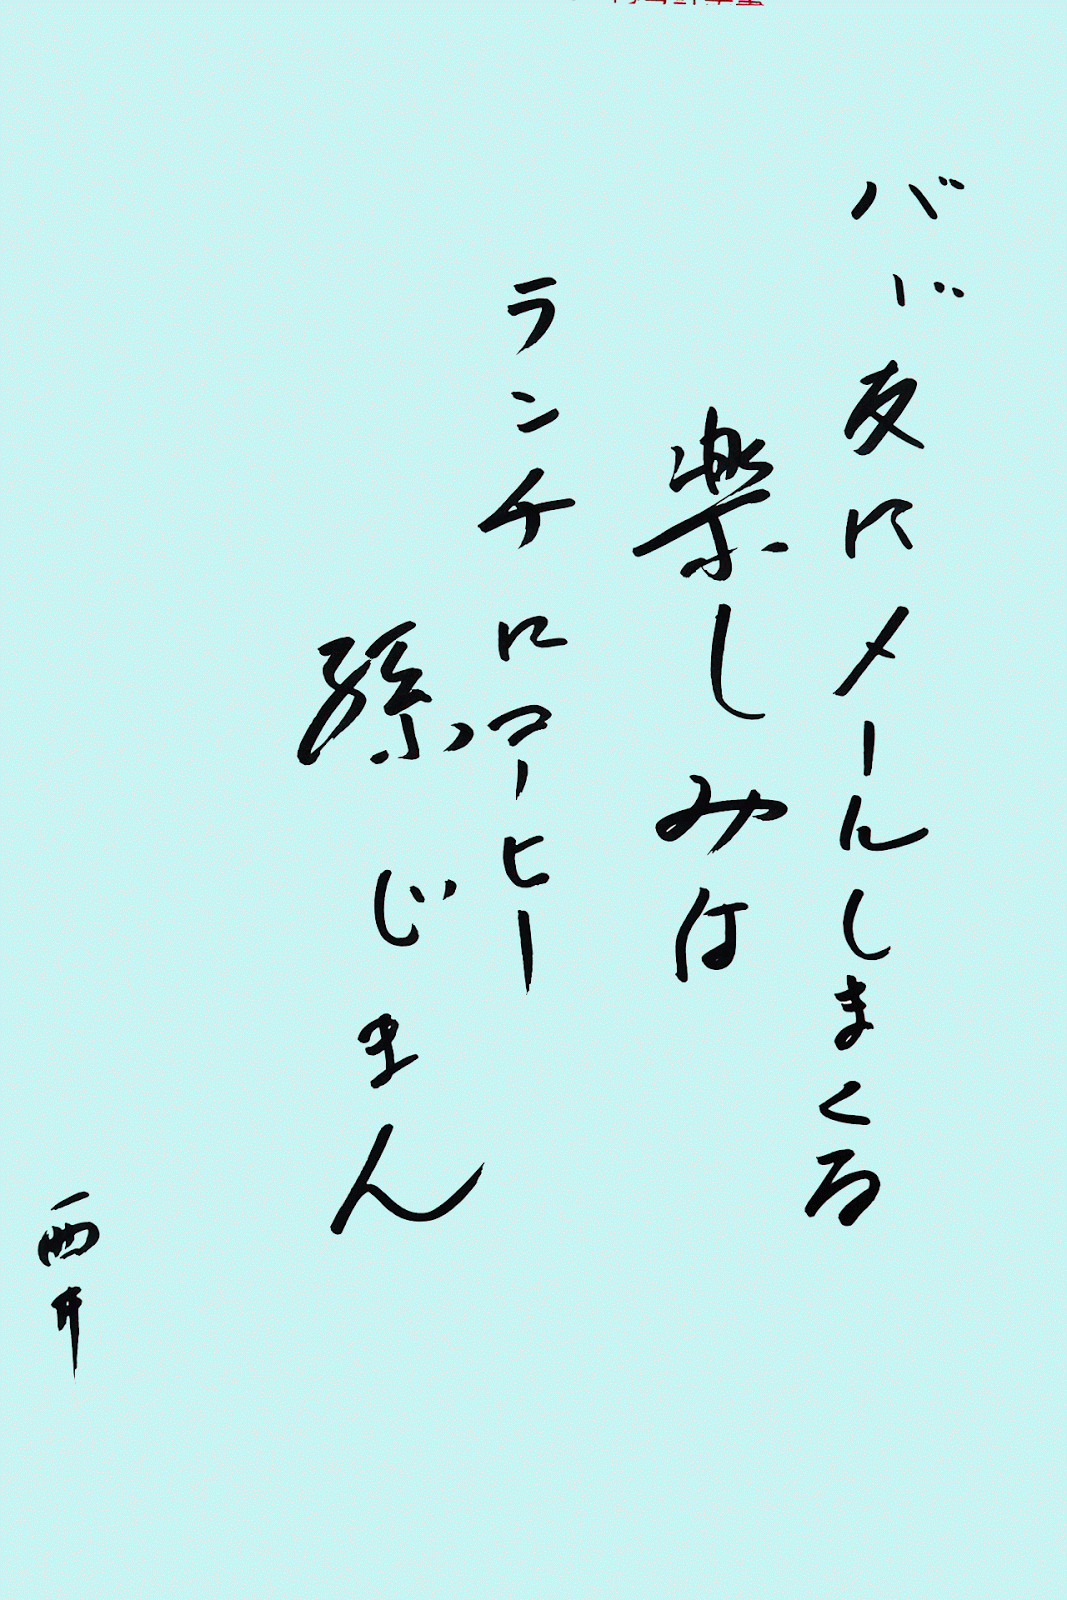 バヾ友にメールしまくる
楽しみは
ランチにコーヒー
孫じまん
西井